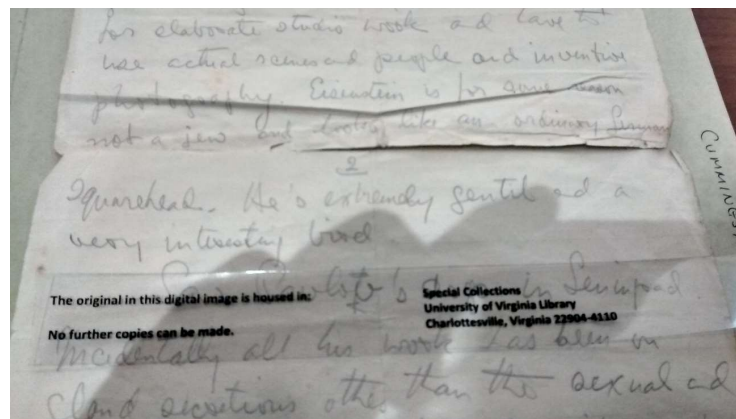 for elaborate studio work and have to
use actual scenes and people and inventive
photography. Eisenstein is for some reason
not a jew and looks like an ordinary German
2
Squarehead. He's extremely gentil and a
very interesting bird.
Saw 's in Leningrad
The original in this digital image is housed in:
No further copies can be made.
Special Collections
University of Virginia Library
Charlottesville, Virginia 22904-4110
Incidentally all his work has been on
gland secretions other than the sexual and
CUMMINGS